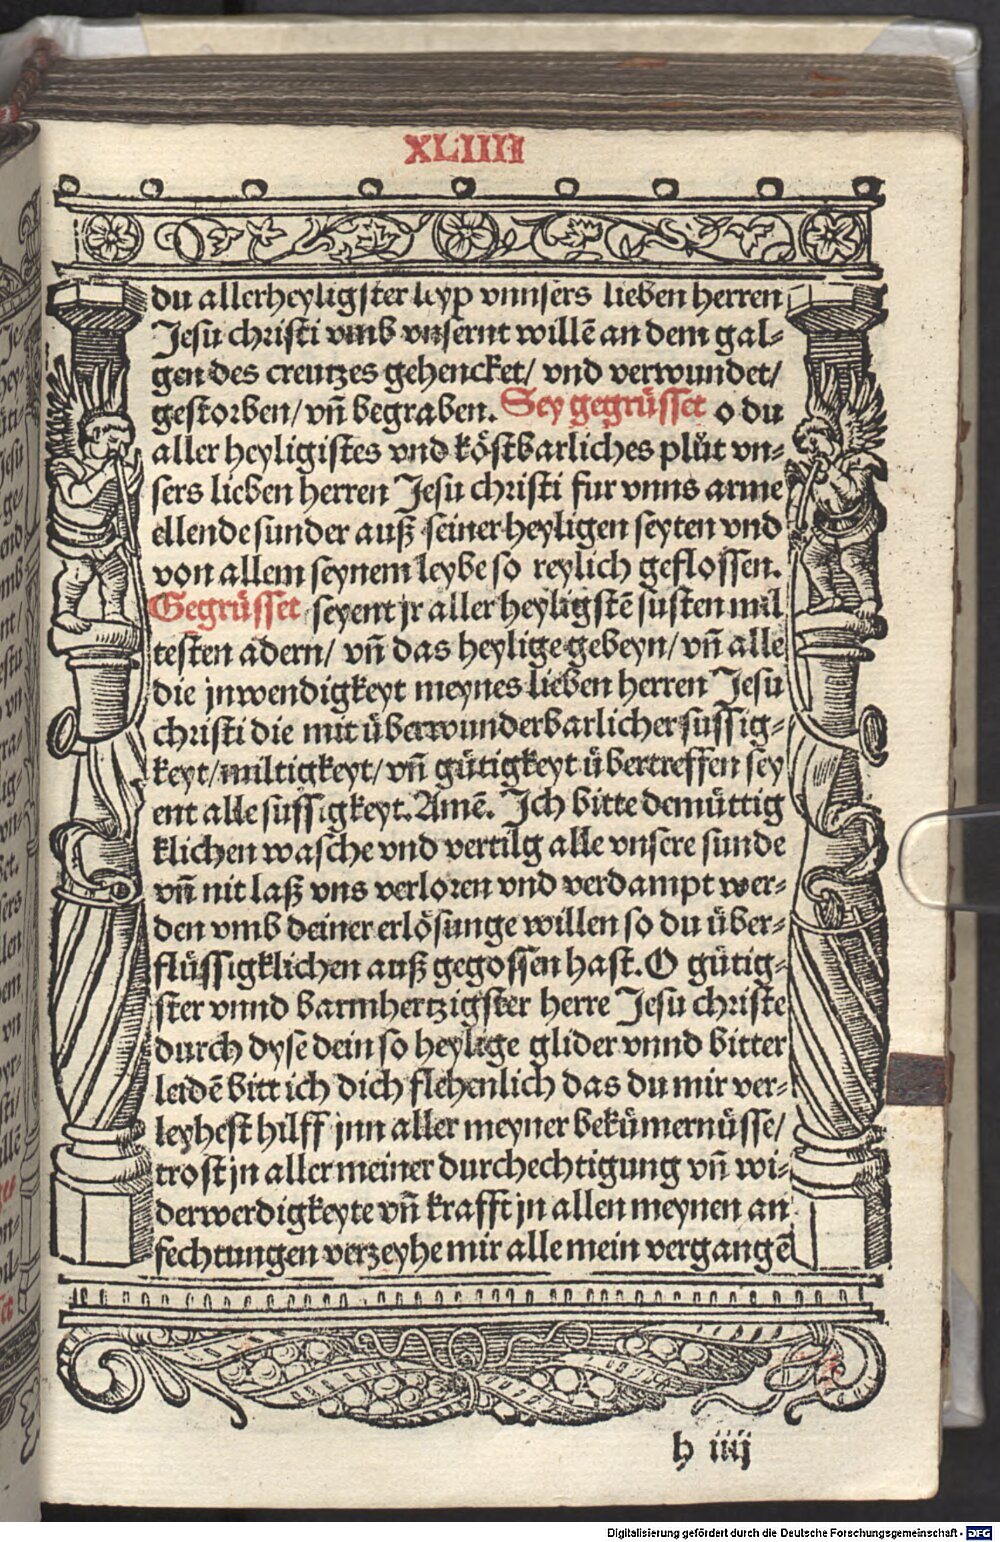 XLIIII
du allerheyligster leyp vnnsers lieben herren
Jesu christi vmb vnsernt willē an dem gal-
gen des creutzes gehencket/ vnd verwundet/
gestorben/ vñ begraben. Sey gegrüsset o du
aller heyligistes vnd köstbarliches plůt vn-
sers lieben herren Jesu christi fur vnns arme
ellende sunder auß seiner heyligen seyten vnd
von allem seynem leybe so reylich geflossen.
Gegrüsset seyent jr aller heyligstē susten mil
testen adern/ vñ das heylige gebeyn/ vñ alle
die jnwendigkeyt meynes lieben herren Jesu
christi die mit überwunderbarlicher sussig-
keyt/ miltigkeyt/ vñ gütigkeyt übertreffen sey
ent alle sussigkeyt. Amē. Ich bitte demüttig
klichen wasche vnd vertilg alle vnsere sunde
vñ nit laß vns verloren vnd verdampt wer-
den vmb deiner erlösunge willen so du über-
flüssigklichen auß gegossen hast. O gütig-
ster vnnd barmhertzigster herre Jesu christe
durch dyse dein so heylige glider vnnd bitter
leidē bitt ich dich flehenlich das du mir ver-
leyhest hilff jnn aller meyner bekümernüsse/
trost jn aller meiner durchechtigung vñ wi-
derwerdigkeyte vñ krafft jn allen meynen an
fechtungen verzeyhe mir alle mein vergangē
h iiij
Digitalisierung gefördert durch die Deutsche Forschungsgemeinschaft - DFG